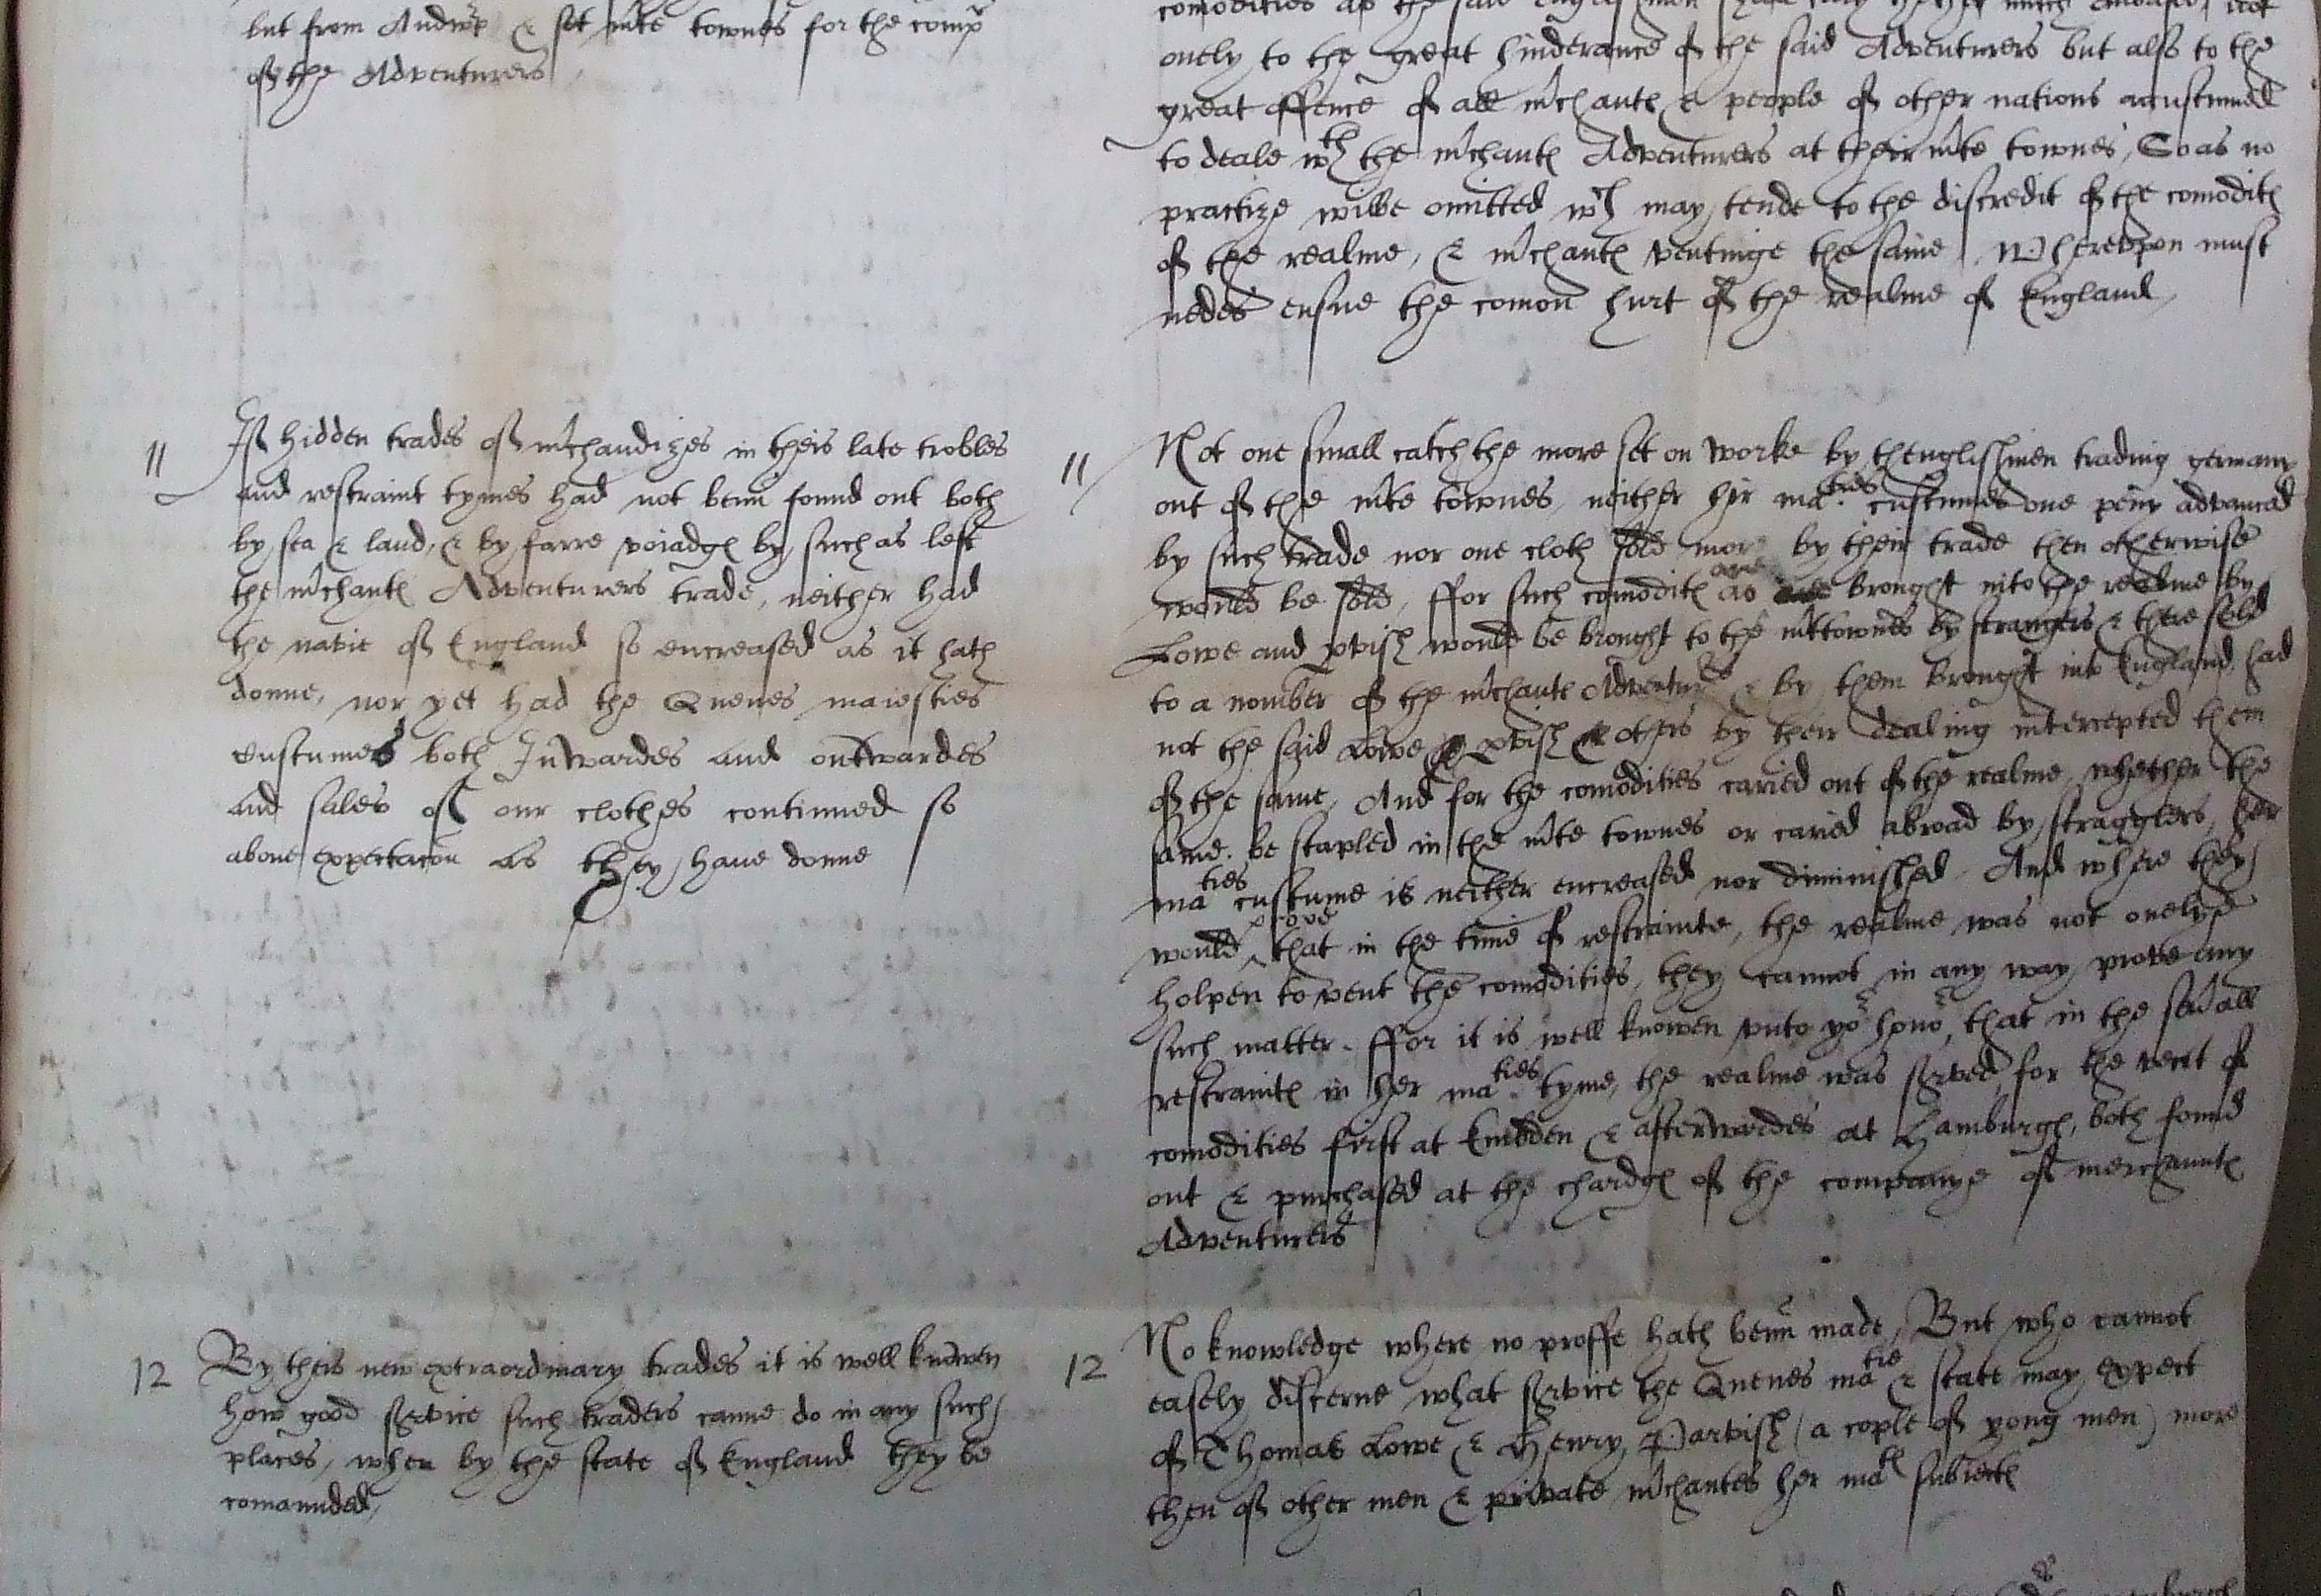 but from Andwp & set mte townes for the comp
of the Adventurers
comodities as the said
onely to the great hinderance of the said Adventurers but also to the
great offence of all mchantes & people of other nations accustumed
to deale wth the mchantes Adventurers at their mte townes, So as no
practize wilbe omitted wch may tende to the discredit of the comodites
of the realme, & mchantes ventinge the same. Wherevpon must
nedes ensue the comon hurt of the realme of England
11 If hidden trades of mchandizes in theis late trobles
and restraint tymes had not benn found out both
by sea & land, & by farre voiadges by such as left
the mchantes Adventurers trade, neither had
the navie of England so encreased as it hath
donne, nor yet had the Quenes maiesties
custumes both Inwardes and outwardes
and sales of our clothes continued so
aboue expectacon as they haue donne
11 Not one small catch the more set on worke by thenglishmen trading germany
out of the mte townes, neither hir maties custumes one peny advanced
by such trade nor one cloth sold more by their trade then otherwise
would be sold, ffor such comodites as are brought into the realme by
Lowe and pvish would be brought to the mttownes by strangers & there sold
to a nomber of the mchantes Adventurers & by them brought into England, had
not the said Lowe & pvish & others by their dealing intercepted them
of the same, And for the comodities caried out of the realme, whether the
same be stapled in the mte townes or caried abroad by stragglers, her
maties custume is neither encreased nor diminished. And where they
would prove that in the time of restrainte, the realme was not onelye
holpen to vent the comodities, they cannot in any way prove any
such matter. ffor it is well knowen vnto yor honor, that in the seuall
restraintes in her maties tyme, the realme was served for the vent of
comodities first at Embden & afterwardes at Hamburgh, both found
out & purchased at the chardges of the companye of merchauntes
Adventurers
12 By theis new extraordinary trades it is well knowen
how good service such traders canne do in any such
places, when by the state of England they be
comaunded,
12 No knowledge where no proffe hath benn made, But who cannot
easely discerne what service the Quenes matie & state may expect
of Thomas Lowe & Henry Parvish (a cople of yong men) more
then of other men & private mchantes her mates subiectes